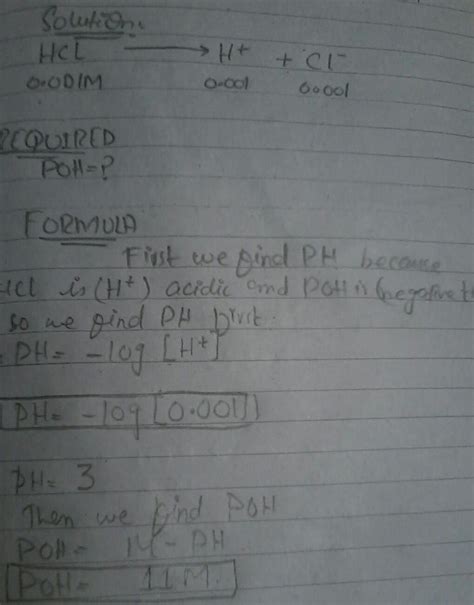 Solution:
HCL → H+ + Cl-
0.001M 0.001 0.0001
REQUIRED
POH=?
FORMULA
First we find PH because
HCl is (H+) acidic and POH is (negative
so we find PH first.
PH= -log [H+]
PH= -log [0.001]
PH= 3
Then we find POH
POH= 14-PH
POH= 11M.